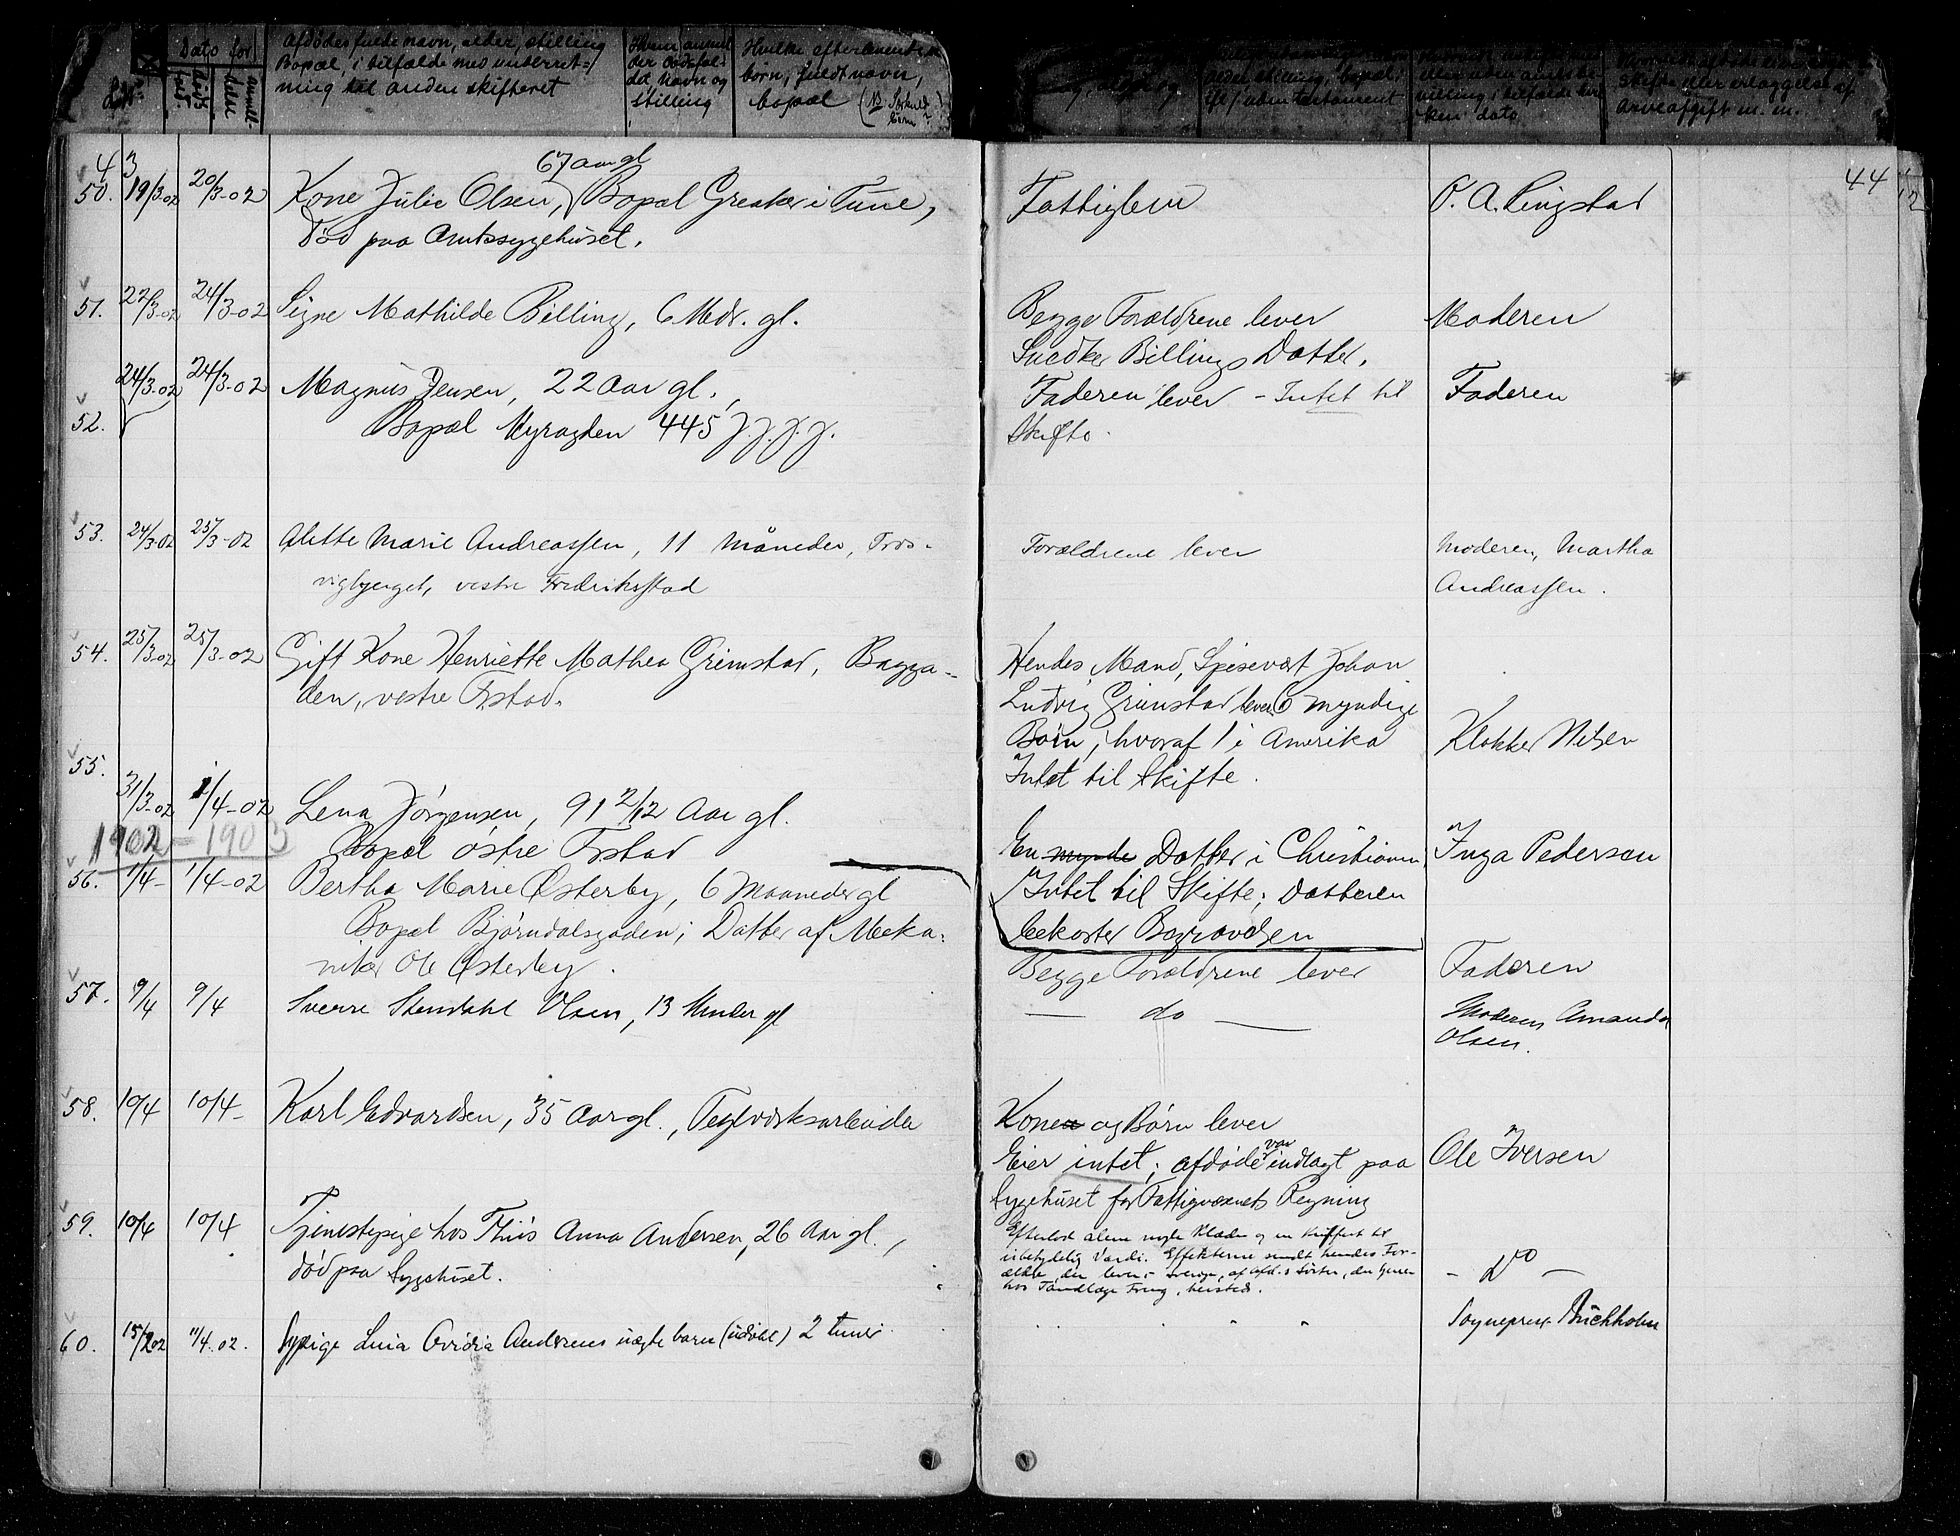 Dato for
Afdødes fulde navn, alder, stilling
Bopæl, i tilfælde med underret-
ning til anden skifteret
Hvem anmel
der dødsfal-
det Navn og
Stilling
Hvilke efterlevende
børn, fuldt navn,
bopæl
43
44
67 Aar gl
50. 19/3-02 20/3-02 Kone Julie Olsen, Bopæl Greaker i Tune, Fattiglem O. A. Ringstad
Død paa Amtssygehuset.
51. 22/3-02 24/3-02 Signe Mathilde Billing, 6 Mdr. gl. Begge Forældrene lever Moderen
Snedker Billings Datter.
24/3-02 24/3-02 Magnus Jensen, 22 Aar gl. Faderen lever - Intet til Faderen
52. Bopæl Nyragden 445 J.J.J.J. Skifte.
53. 24/3-02 25/3-02 Alette Marie Andreassen, 11 Måneder, Tros- Forældrene lever Moderen, Martha
vigbjerget, vestre Fredriksstad Andreassen.
54. 25/3-02 25/3-02 Gift Kone Henriette Mathea Grimstad, Bagga- Hendes Mand, Spisevært Johan
den, vestre Fstad. Ludvig Grimstad lever 6 myndige
Børn, hvoraf 1 i Amerika Klokker Nilsen
Intet til Skifte.
55.
31/3-02 1/4-02 Lena Jörgensen, 91 2/12 Aar gl.
1902-1903 Bopæl østre Fstad En mynde Datter i Christiania Inga Pedersen
56. 1/4- 1/4-02 Bertha Marie Østerby, 6 Maaneder gl Intet til Skifte; Datteren
Bopæl Bjørndalsgaden; Datter af Meka- bekoster Begravelsen
niker Ole Østerby. Begge Forældrene lever Faderen
57. 9/4 9/4 Sverre Stendahl Olsen, 13 Mndr gl — do — Moderen Amanda
Olsen.
58. 10/4 10/4- Karl Edvardsen, 35 Aar gl., Teglværksarbeider Kone og Børn lever
Eier intet; afdøde var indlagt paa Ole Iversen
Sygehuset for Fattigvæsnets Regning
59. 10/4 10/4 Tjenestepige hos Thiis Anna Andersen, 26 Aar gl., Efterlod alene nogle Klæder og en Kuffert til
ubetydelig Værdi. Effekterne sendt hendes For-
død paa Sygehuset. ældre, der lever i Sverige, af afd.s Søster, der tjener - do -
hos Tandlæge Fring, hersted.
60. 15/2 02 11/4.02. Pige Lina Ovidia Andersens uægte barn (udøbt) 2 timer " " Sogneprest Buchholm